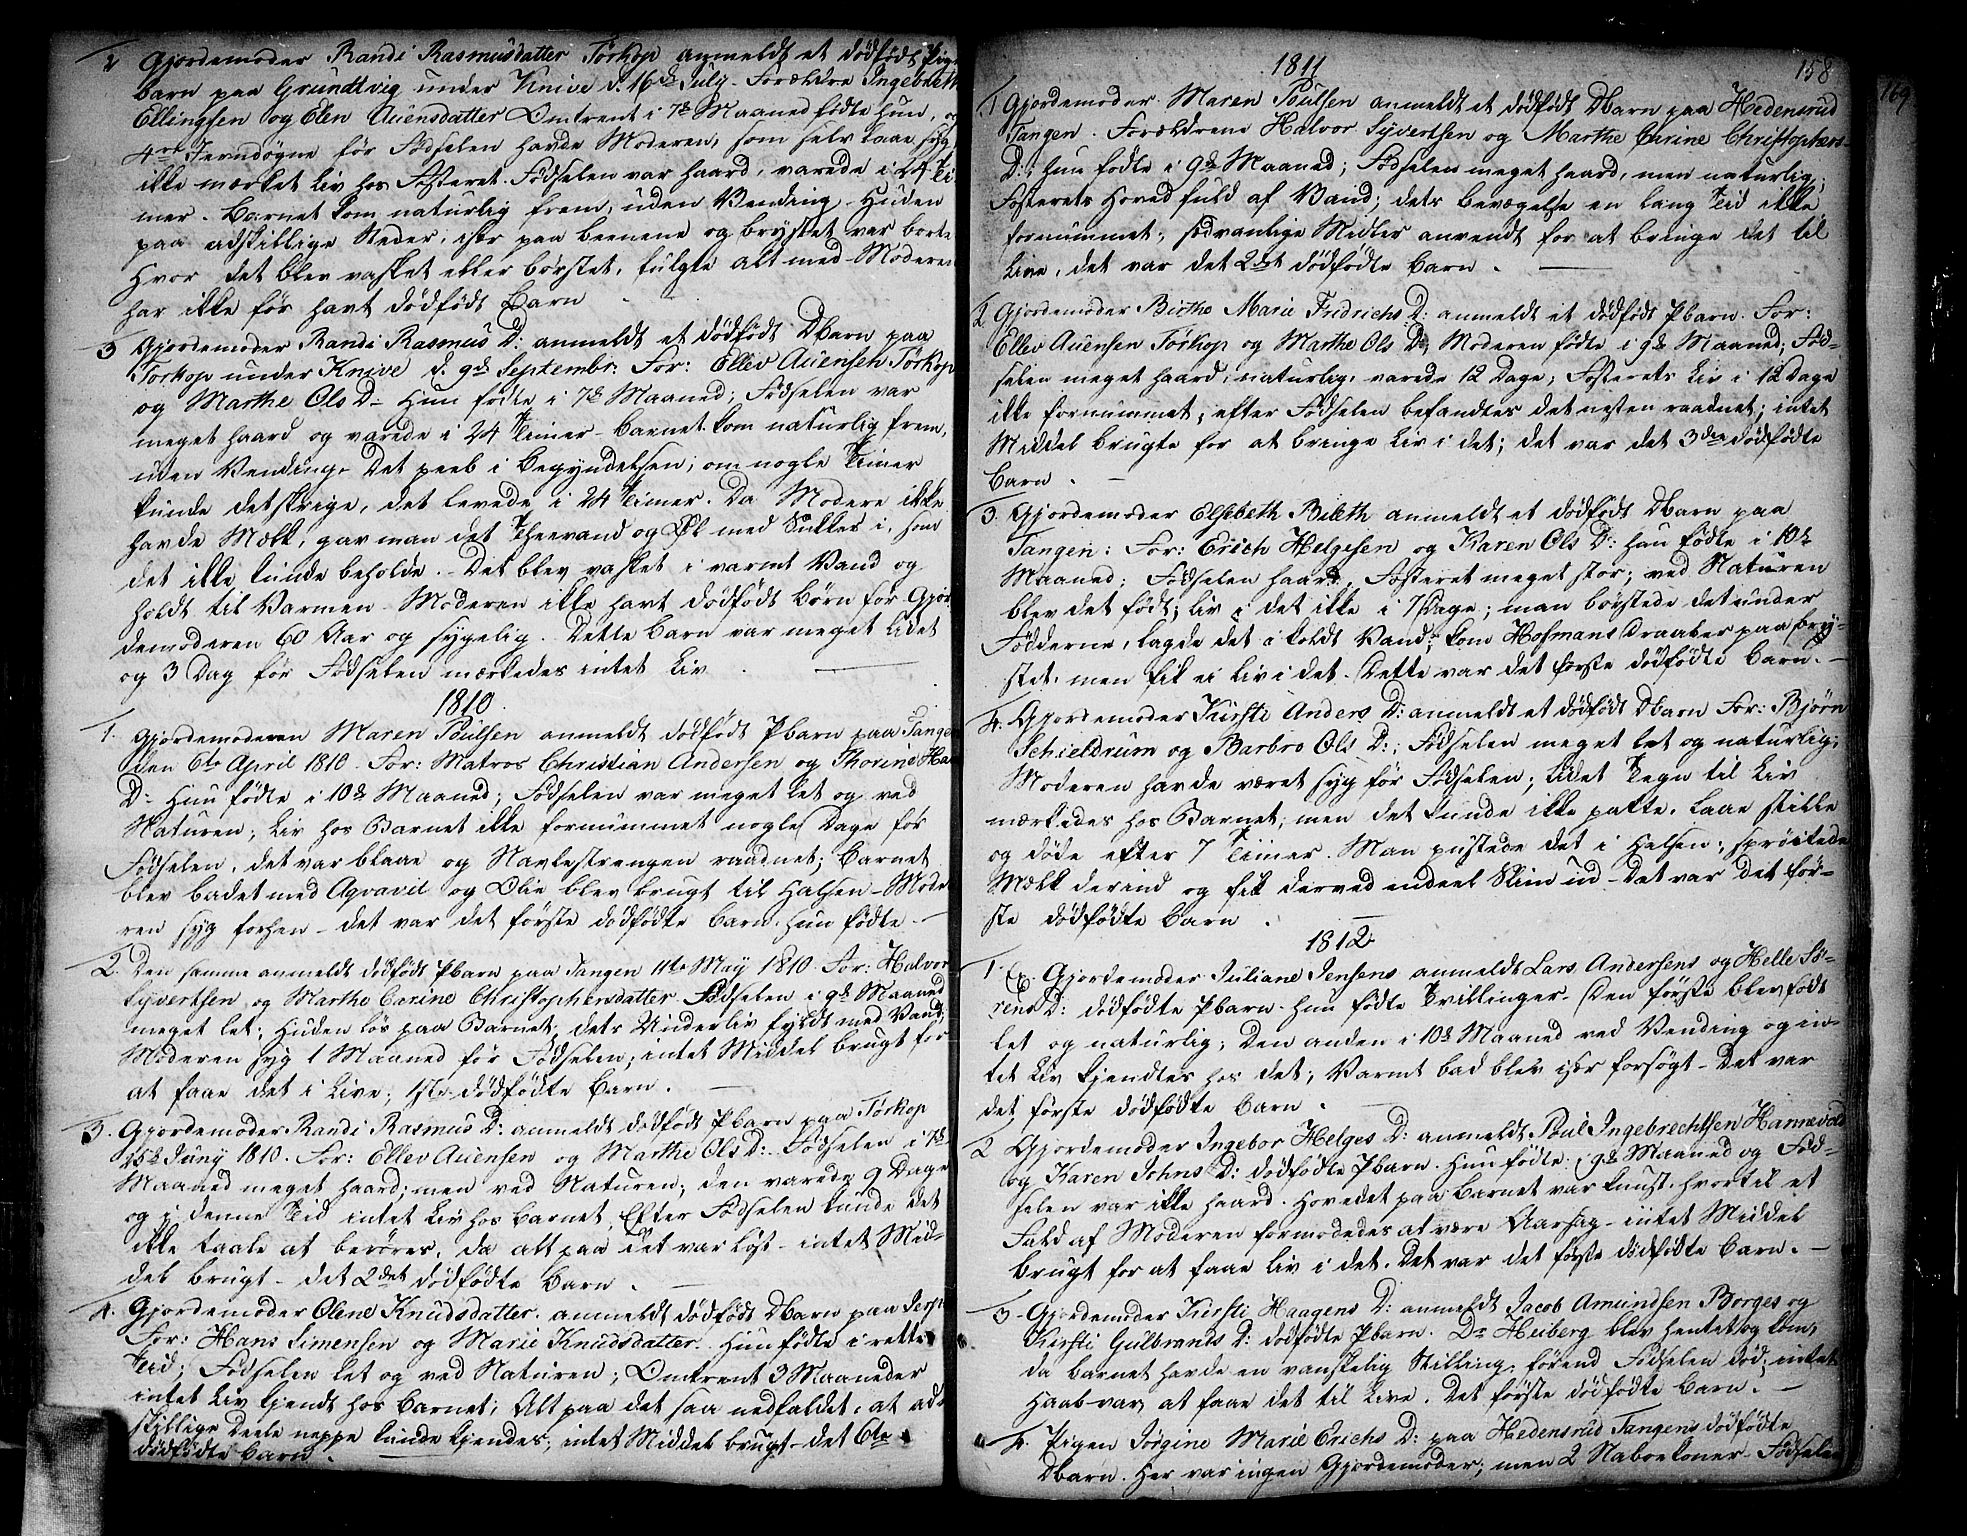 2 Gjordemoder Randi Rasmusdatter Torkop anmeldt et dödfödt Pige
barn paa Grundtvig under Knive d. 16de July. Forældre Ingebreth
Ellingsen og Elen Auensdatter Omtrent i 7de Maaned födte hun, og
4re Jerndögne för Födselen havde Moderen, som selv laae syg,
ikke mærket Liv hos Fosteret. Födselen var haard, varede i 24 Ti-
mer. Barnet kom naturlig frem, uden Vending. Huden
paa adskillige Steder, især paa beenene og brystet var borte
Hvor det blev vasket eller börstet, fulgte alt med. Moderen
har ikke för havt dödfödt Barn
3 Gjordemoder Randi Rasmus D: anmeldt et dödfödt Dbarn paa
Torkop under Knive d. 9de Septembr: For: Ellev Auensen Törkop
og Marthe Ols D. Hun födte i 7de Maaned; Födselen var
meget haard og varede i 24 Timer. Barnet kom naturlig frem,
uden Vending. Det peeb i Begyndelsen; om nogle Timer
kunde det skrige, det levede i 24 Timer. Da Modere ikke
havde Mælk, gav man det Theevand og Öl med Sukker i, som
det ikke kunde beholde. Det blev vasket i varmt Vand og
holdt til Varmen. Moderen ikke havt dödfödt börn för Gjor
demoderen 60 Aar og sygelig. Dette barn var meget lidet
og 3 Dag för Födselen mærkedes intet Liv.
1810.
1. Gjordemoderen Maren Poulsen anmeldt dödfödt Pbarn paa Tangen
den 6te April 1810. For: Matros Christian Andersen og Thorine Ha
D: Hun födte i 10de Maaned; Födselen var meget let og ved
Naturen; Liv hos Barnet ikke fornummet nogle Dage för
Födselen, det var blaae og Navlestrengen raadnet; Barnet
blev badet med Aqvavit og Olie blev brugt til Halsen. Mode
ren syg forhen. det var det förste dödfödte barn hun födte.
2. Den samme anmeldt dödfödt Pbarn paa Tangen 11te May 1810. For: Halvor
Syvertsen og Marthe Carine Christophersdatter. Födselen i 9de Maaned
meget let; Huden lös paa Barnet, dets Underliv fyldt med Vand;
Moderen syg 1 Maaned för Födselen; intet Middel brugt for
at faae det i Live; 1ste dödfödte barn.
3. Gjordemoder Randi Rasmus D: anmeldt dödfödt Pbarn paa Törkop
25de Juny 1810. For: Ellev Auensen og Marthe Ols D: Födselen i 7de
Maaned meget haard; men ved Naturen; den varede 9 Dage
og i denne Tid intet Liv hos barnet. Efter Födselen kunde det
ikke taale at beröres, da alt paa det var löst. intet Mid-
del brugt. det 2det dödfödte barn.
4. Gjordemoder Olene Knudsdatter anmeldt dödfödt Dbarn paa Jersö
For: Hans Simensen og Marie Knudsdatter. Hun födte i rette
Tid; Födselen let og ved Naturen; Omtrent 3 Maaneder
intet Liv kjendt hos barnet; Alt paa det saa nedfaldet, at ad-
skillige Deele neppe kunde kjendes; intet Middel brugt. det 6te
dödfödte barn.
1811
158
169
1 Gjordemoder Maren Poulsen anmeldt et dödfödt Dbarn paa Hedensrud
Tangen. Forældrene Halvor Syvertsen og Marthe Carine Christophers-
D:, hun födte i 9de Maaned; Födselen meget haard, men naturlig;
Fosterets Hoved fuld af Vand; dets bevægelse en lang Tid ikke
fornummet; sædvanlige Midler anvendt for at bringe det til
Live, det var det 2det dödfödte barn.
2 Gjordemoder Birthe Marie Fridrichs D: anmeldt et dödfödt Pbarn. For:
Ellev Auensen Törkop og Marthe Ols D; Moderen födte i 9de Maaned; Föd-
selen meget haard, naturlig, varede 12 Dage; Fosterets Liv i 12 Dage
ikke fornummet; efter Födselen befandtes det næsten raadnet; intet
Middel brugte for at bringe Liv i det; det var det 3die dödfödte
Barn.
3. Gjordemoder Elsebeth Bileth anmeldt et dödfödt Dbarn paa
Tangen: For: Erich Helgesen og Karen Ols D: hun födte i 10de
Maaned; Födselen haard, Fosteret meget stor; ved Naturen
blev det födt; Liv i det ikke i 7 Dage; man börstede det under
Födderne, lagde det i koldt Vand; kom Hofmans Draaber paa Bry-
stet, men fik ei Liv i det. Dette var det förste dödfödte barn.
4. Gjordemoder Kirsti Anders D: anmeldt et dödfödt Dbarn For: Björn
Schieldrum og Barbro Ols D:; Födselen meget let og naturlig;
Moderen havde været syg för Födselen; Lidet Tegn til Liv
mærkedes hos Barnet; men det kunde ikke patte, laae stille
og döde efter 7 Timer. Man pustede det i Halsen; spröitede
Mælk derind og fik derved endeel Sliim ud. Det var det för-
ste dödfödte barn.
1812
1. Gjordemoder Juliane Jensens anmeldt Lars Andersens og Helle Sö-
rens D: dödfödte Pbarn. Hun födte Tvillinger. Den förste blev födt
let og naturlig; Den anden i 10de Maaned ved Vending og in-
tet Liv kjendtes hos det; Varmt bad blev især forsögt. Det var
det förste dödfödte barn.
2 Gjordemoder Ingebor Helges D: anmeldt Poul Ingebrechtsen Hannevold
og Karen Johns D: dödfödte Pbarn. Hun födte i 9de Maaned og Föd-
selen var ikke haard. Hovedet paa barnet var knust, hvortil et
Fald af Moderen formodedes at være Aarsag. intet Middel
brugt for at faae Liv i det. Det var det förste dödfödte barn.
3. Gjordemoder Kirsti Haagens D: anmeldt Jacob Amundsen Borges og
Kirsti Gulbrands D: dödfödte Pbarn. Dr Heiberg blev hentet og kom,
da barnet havde en vanskelig Stilling, förend Födselen död; intet
Haab var, at faae det til Live. Det förste dödfödte barn.
4. Pigen Jörgine Marie Erichs D: paa Hedensrud Tangens dödfödte
Dbarn. Her var ingen Gjordemoder; men 2 Naboekoner. Födselen